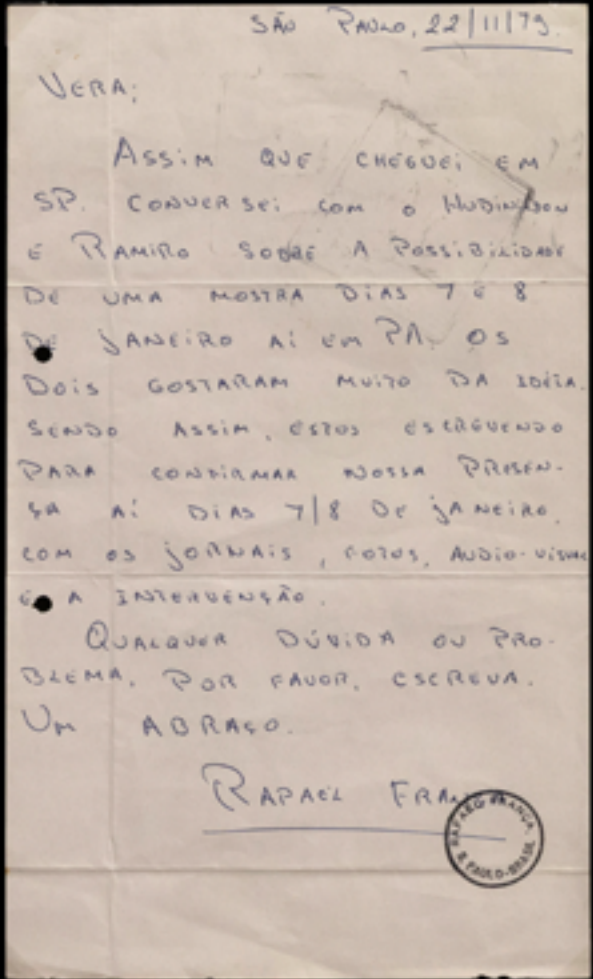 SÃO PAULO, 22/11/79.
VERA;
ASSIM QUE CHEGUEI EM
SP. CONVERSEI COM O HUDINILSON
E RAMIRO SOBRE A POSSIBILIDADE
DE UMA MOSTRA DIAS 7 E 8
DE JANEIRO AÍ EM PA. OS
DOIS GOSTARAM MUITO DA IDÉIA.
SENDO ASSIM, ESTOU ESCREVENDO
PARA CONFIRMAR NOSSA PRESEN-
SA AÍ DIAS 7/8 DE JANEIRO.
COM OS JORNAIS, FOTOS, AUDIO-VISUAL
E A INTERVENÇÃO.
QUALQUER DÚVIDA OU PRO-
BLEMA, POR FAVOR, ESCREVA.
UM ABRAÇO.
RAFAEL FRANÇA
RAFAEL FRANÇA.
S. PAULO-BRASIL